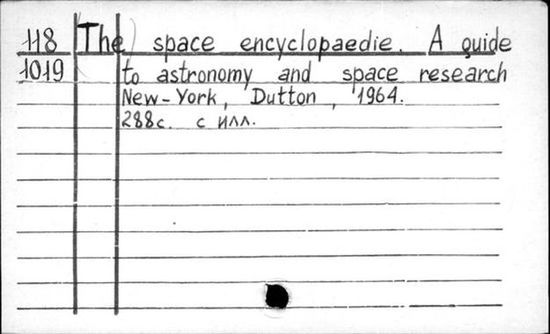 118 The space encyclopaedie. A guide
1019 to astronomy and space research
New-York, Dutton, 1964.
288с. с илл.